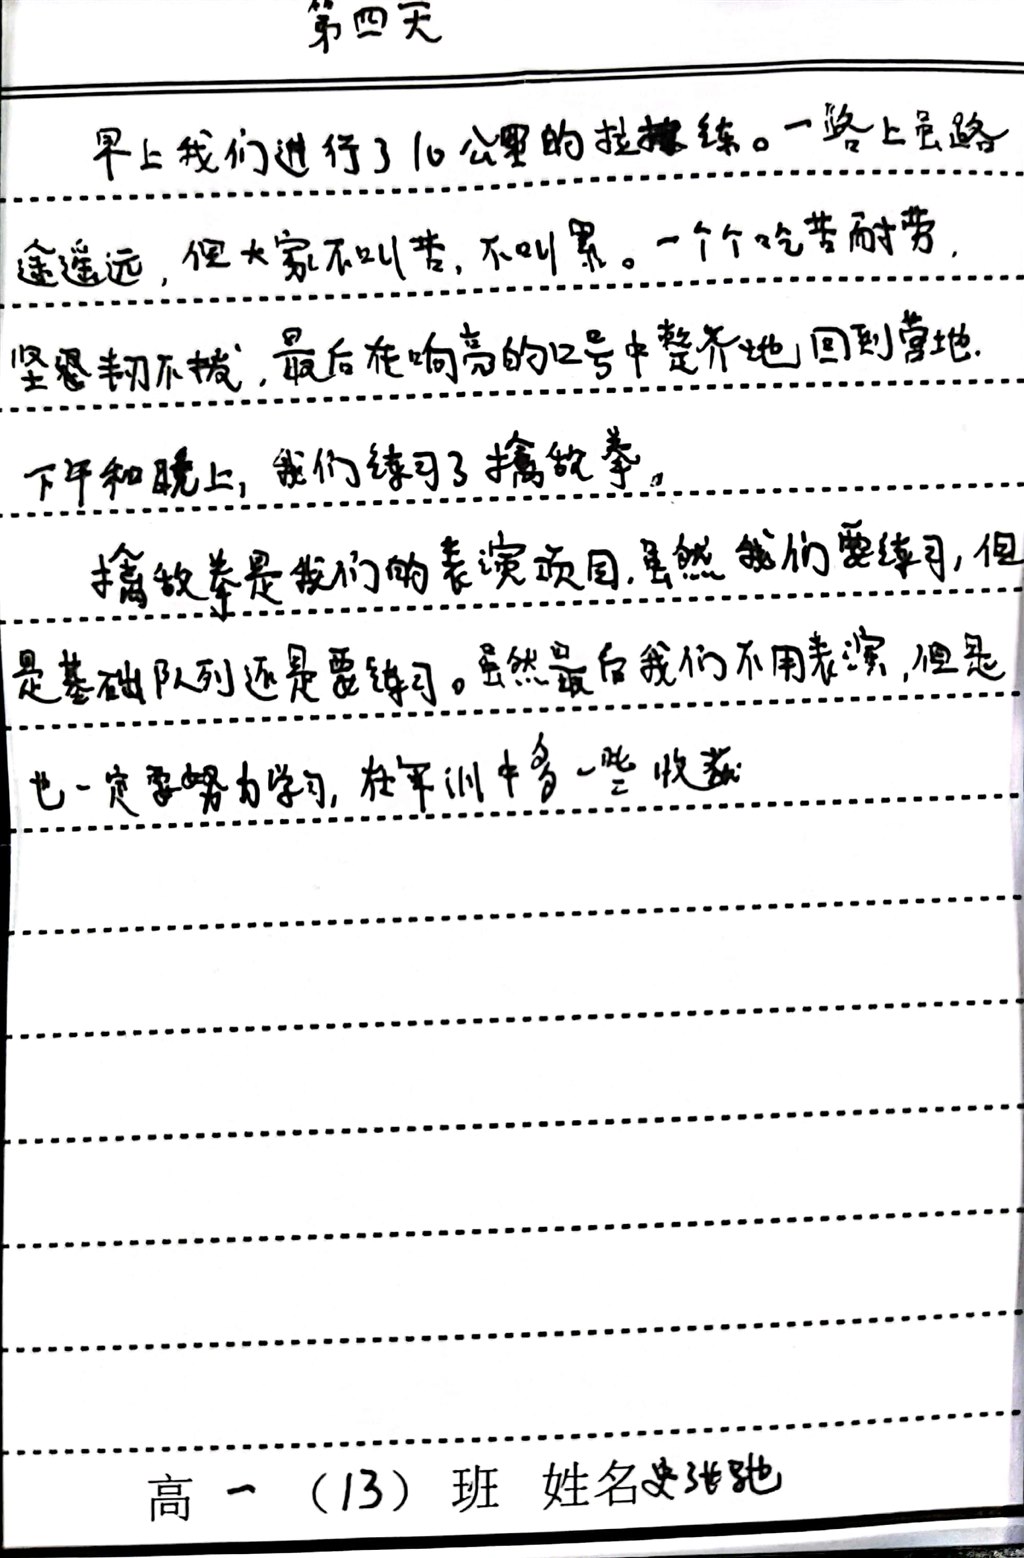 第四天
早上我们进行了10公里的拉练。一路上虽路
途遥远,但大家不叫苦,不叫累。一个个吃苦耐劳,
坚韧不拔,最后在响亮的口号中整齐地回到营地.
下午和晚上,我们练习了擒敌拳。
擒敌拳是我们的表演项目.虽然我们要练习,但
是基础队列还是要练习。虽然最后我们不用表演,但是
也一定要努力学习,在军训中多一些收获
高一(13)班 姓名史张弛